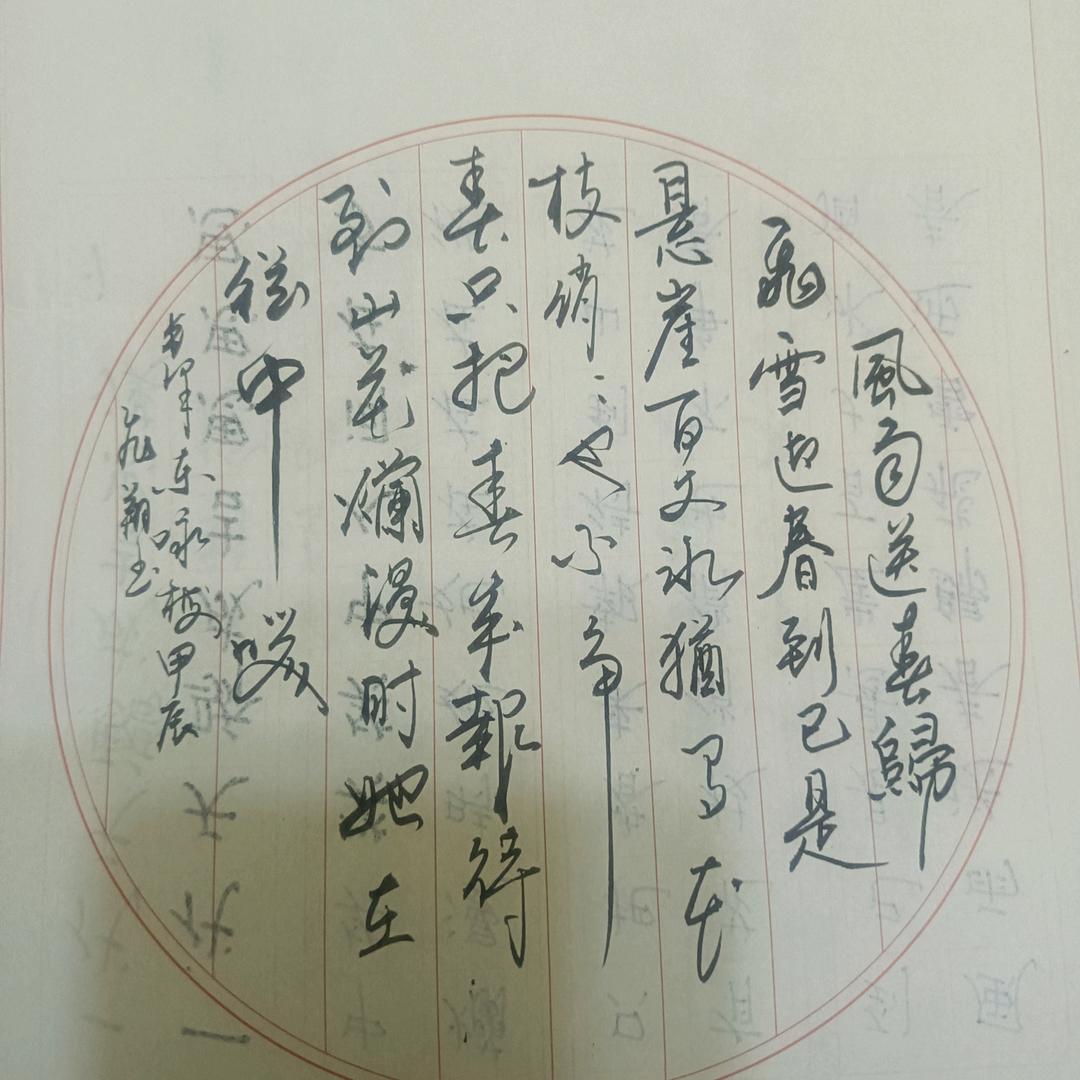 風雨送春歸
飛雪迎春到已是
悬崖百丈冰猶有花
枝俏〻也不争
春只把春来報待
到山花爛漫时她在
叢中笑
毛泽东咏梅甲辰
翔书